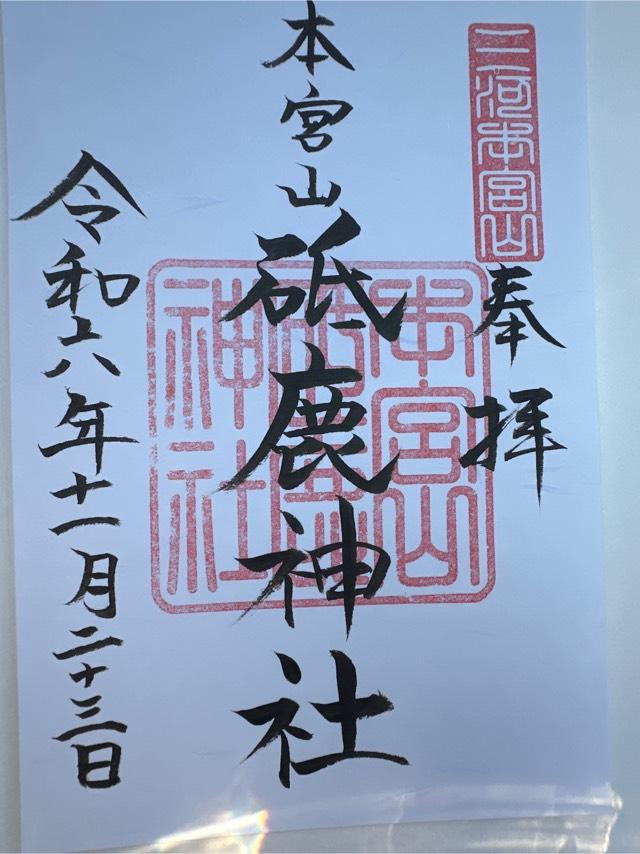 三河本宮山
奉拝
本宮山
砥鹿神社
本宮山
砥鹿
神社
令和六年十一月二十三日